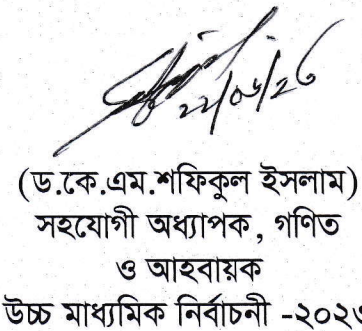 22/06/26
(ড.কে.এম.শফিকুল ইসলাম)
সহযোগী অধ্যাপক, গণিত
ও আহবায়ক
উচ্চ মাধ্যমিক নির্বাচনী